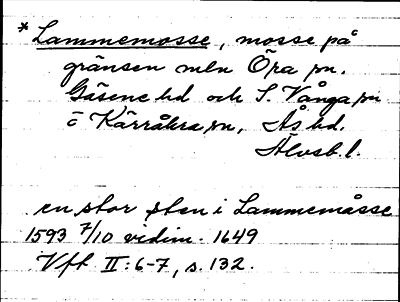 *Lammemosse, mosse på
gränsen mln Öra sn.
Gäsene hd och S. Vånga sn
o Kärråkra sn, Ås hd.
Älvsb. l.
en stor sten i Lammemåsse
1593 7/10 vidim. 1649
Vff II:6-7, s. 132.